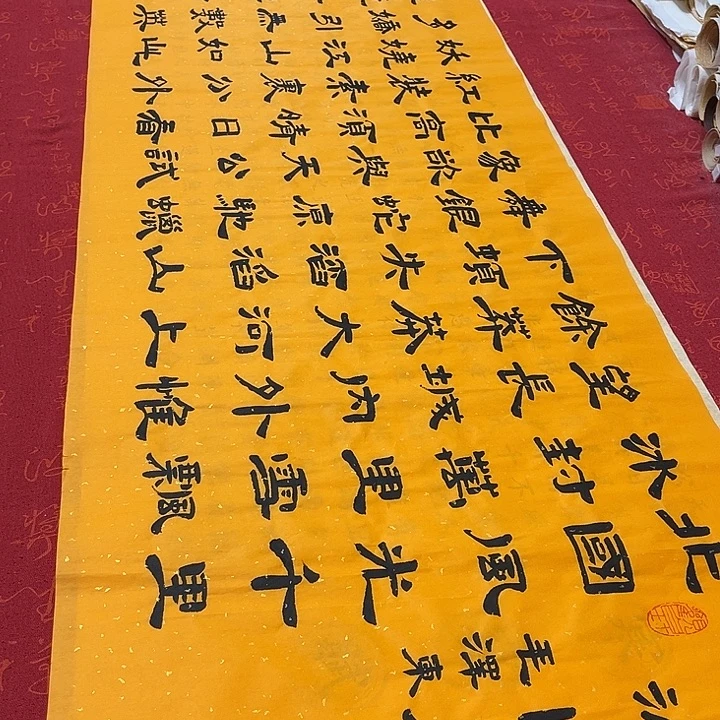 北國風光千里
冰封萬里雪飄
望長城內外惟
餘莽莽大河上
下頓失滔滔山
舞銀蛇原馳蠟
象欲與天公試
比高須晴日看
紅裝素裹分外
妖嬈江山如此
多嬌引無數
毛澤東